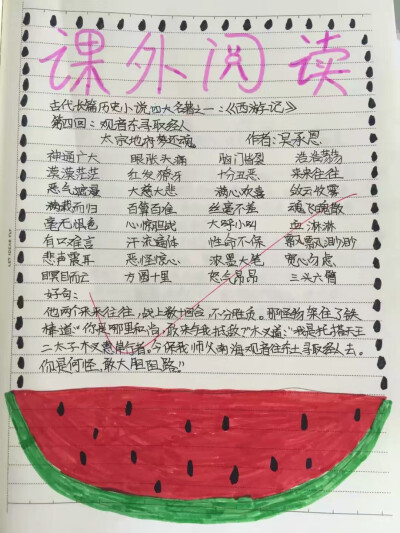 课外阅读
古代长篇历史小说,四大名著之一:《西游记》
第四回:观音东寻取经人
太宗地府梦还魂 作者:吴承恩
神通广大 眼胀头痛 脑门皆裂 浩浩荡荡
茫茫 红发獠牙 十分丑恶 来来往往
恶气 大慈大悲 满心欢喜 敛云收雾
满载而归 百算百准 丝毫不差 魂飞魄散
毫无惧色 心惊胆 大呼小叫 血淋淋
有口难言 汗流 性命不保 飘飘渺渺
悲声震耳 恶怪惊心 浓墨大笔 宽心勿虑
瞑目而亡 方圆十里 怒气昂昂 三头六臂
好句:
他两个来来往往,战上数十回合,不分胜负。那怪物架住了铁
棒道:“你是哪里和尚,敢来与我抵敌?”木叉道:“我是托塔天王
二太子木叉惠岸行者。今保我师父南海观音往东土寻取经人去。
你是何怪,敢大胆阻路。”